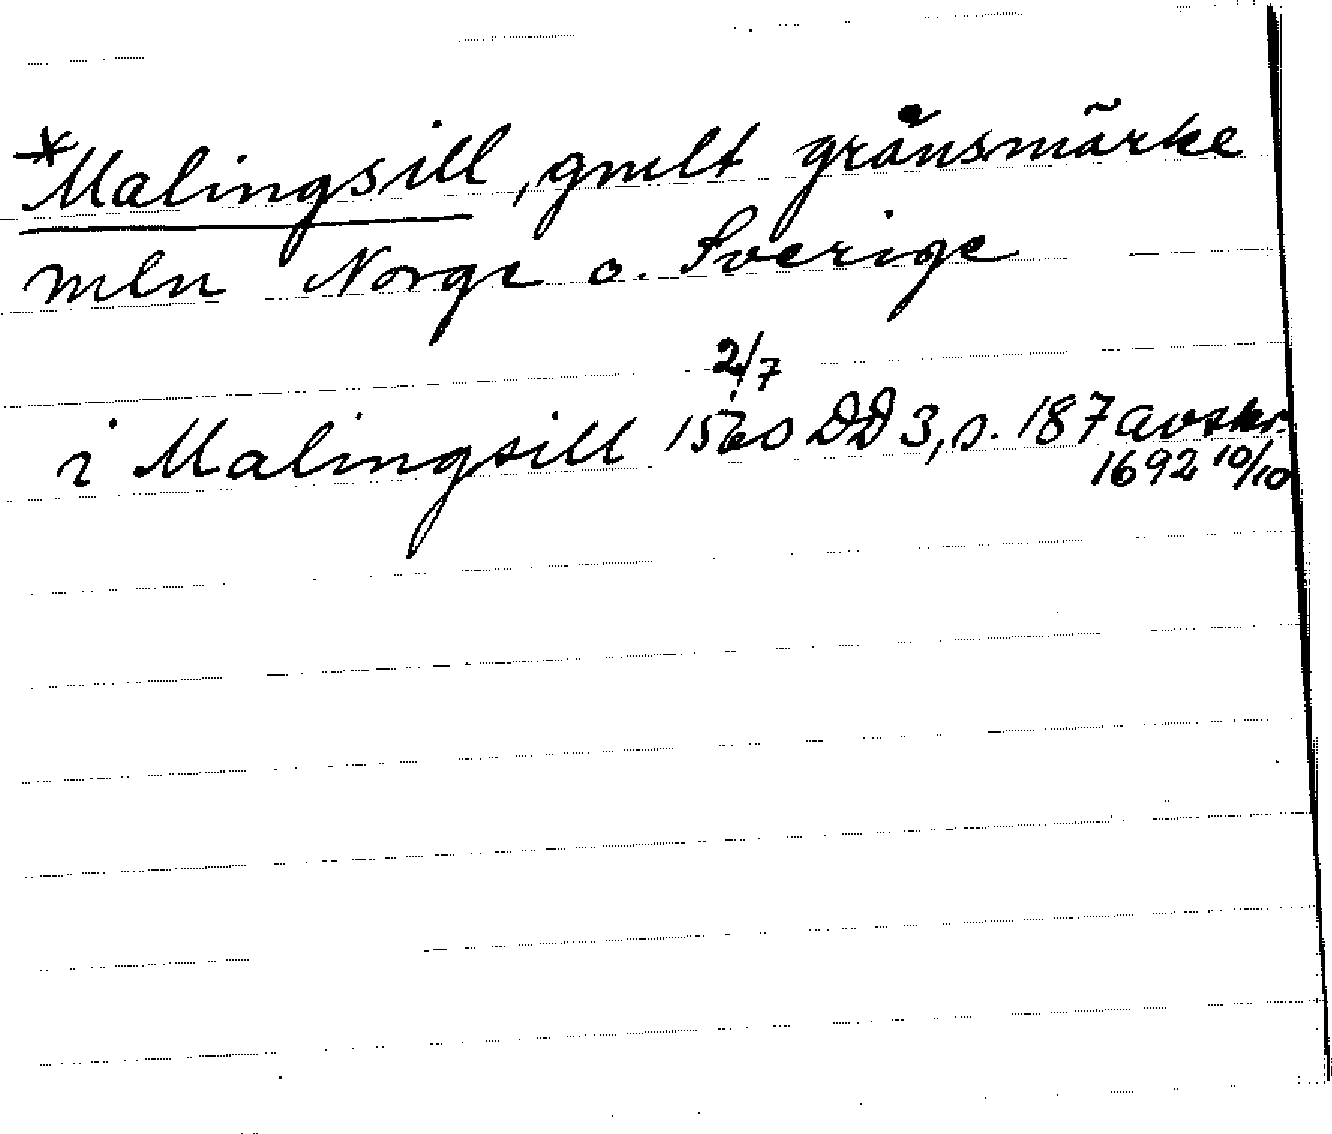 *Malingsill, gmlt gränsmärke
mln Norge o. Sverige
i Malingsill 1560 2/7 DD 3, s. 187 avskr.
1692 10/10